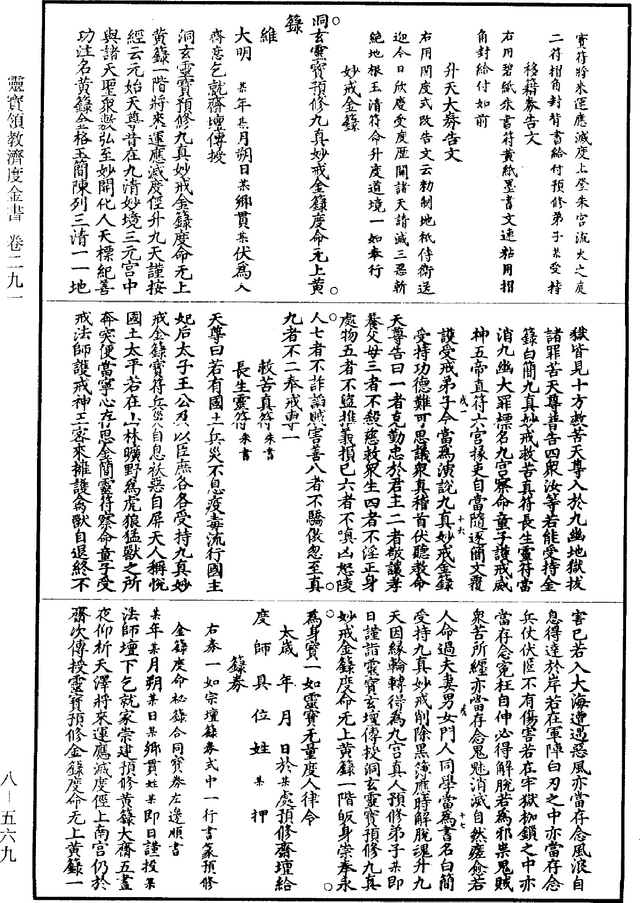 靈寶領教濟度金書 卷二九一
八－五六九
寶符將來運應滅度上登朱宮流火之庭
二符摺角封背書給付預修弟子某受持
移籍券告文
右用碧紙朱書符黃紙墨書文連粘用摺
角封給付如前
升天大券告文
右用開度式改告文云勑制地祇侍衛送
迎今日欣慶受度歷關諸天請滅三惡斬
絕地根玉清符命升度道境一如奉行
妙戒金籙
洞玄靈寶預修九真妙戒金籙度命無上黃
籙
維
大明 某年某月朔日某鄉貫某伏為入
齋意乞就齋壇傳授
洞玄靈寶預修九真妙戒金籙度命无上
黃籙一階將來運應滅度徑升九天謹按
經云元始天尊昔在九清妙境三元宮中
與諸天聖眾敷弘至妙開化人天標紀善
功注名黃籙金格玉簡陳列三清一一地
獄皆見十方救苦天尊入於九幽地獄拔
諸罪苦天尊普告四眾汝等若能受持金
籙白簡九真妙戒救苦真符長生靈符當
消九幽大罪標名九宮察命童子護戒威
神五帝直符六宮掾吏自當隨逐簡文覆
護受戒弟子今當為演說九真妙戒金籙
受持功德難可思議眾真稽首伏聽教命
天尊告曰一者克勤忠於君主二者敬讓孝
養父母三者不殺慈救眾生四者不淫正身
處物五者不盜推義損己六者不嗔凶怒陵
人七者不詐謟賊害善八者不驕傲忽至真
九者不二奉戒專一
救苦真符朱書
長生靈符朱書
天尊曰若有國土兵災不息疫毒流行國主
妃后太子王公以及以臣庶各各受持九真妙
戒金籙寶符兵災自息祅惡自屏天人稱悅
國土太平若在山林曠野為虎狼猛獸之所
奔突便當寧心存思金簡靈符察命童子受
戒法師護戒神王密來擁護禽獸自退終不
害已若入大海遭遇惡風亦當存念風浪自
息得達於岸若在軍陣白刃之中亦當存念
兵仗伏匿不有傷害若在牢獄枷鎖之中亦
當存念冤枉自伸必得解脫若為邪祟鬼賊
眾苦所經亦當存念鬼魅消滅自然痊愈若
人命過夫妻男女門人同學當為書名白簡
受持九真妙戒削除黑簿應時解脫魂升九
天因緣輪轉得為九宮真人預修弟子某即
日謹詣靈寶玄壇傳授洞玄靈寶預修九真
妙戒金籙度命无上黃籙一階皈身崇奉永
為身寶一如靈寶无量度人律令
太歲 年 月 日於某處預修齋壇給
度師具位姓 某 押
籙券
右券一如宗壇籙券式中一行書篆預修
金籙度命祕籙合同寶券左邊順書
某年某月朔某日某鄉貫姓某即日謹投某
法師壇下乞就家崇建預修黃籙大齋五晝
夜仰祈天澤將來運應滅度徑上南宮仍於
齋次傳授靈寶預修金籙度命无上黃籙一